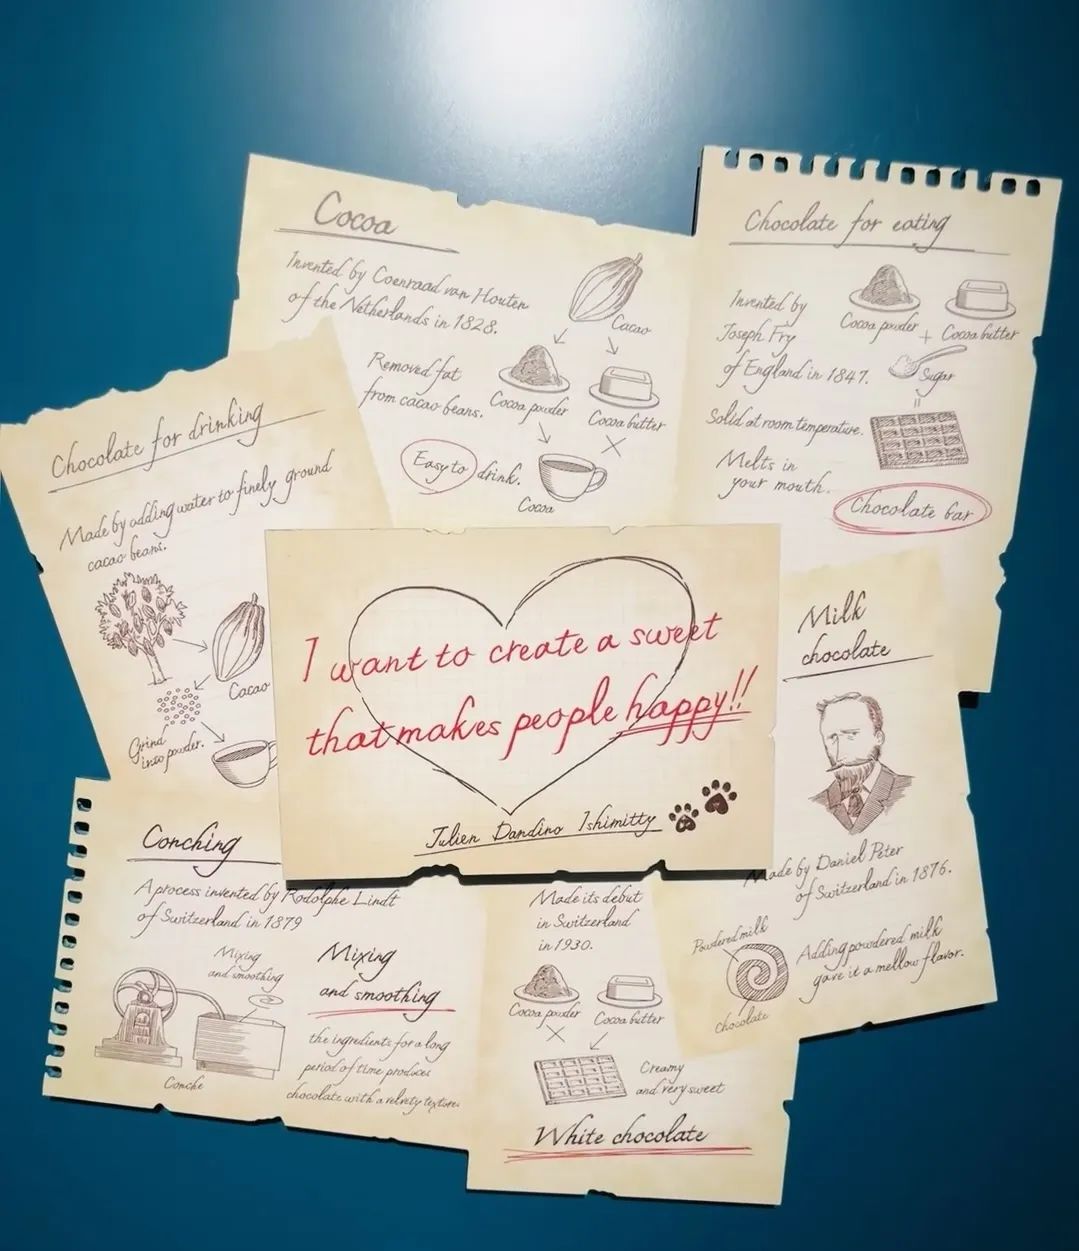 Cocoa
Invented by Coenraad van Houten
of the Netherlands in 1828.
Cacao
Removed fat
from cacao beans.
Cocoa powder
Cocoa butter
Easy to drink.
Cocoa
Chocolate for eating
Invented by
Joseph Fry
of England in 1847.
Cocoa powder + Cocoa butter
Sugar
=
Solid at room temperature.
Melts in
your mouth.
Chocolate bar
Chocolate for drinking
Made by adding water to finely ground
cacao beans.
Cacao
Grind
into powder.
I want to create a sweet
that makes people happy!!
Julien Dandino Ishimitty
Milk
chocolate
Made by Daniel Peter
of Switzerland in 1876.
Powdered milk
chocolate
Adding powdered milk
gave it a mellow flavor.
Conching
A process invented by Rodolphe Lindt
of Switzerland in 1879
Mixing
and smoothing
Conche
Mixing
and smoothing
the ingredients for a long
period of time produces
chocolate with a velvety texture.
Made its debut
in Switzerland
in 1930.
Cocoa powder
Cocoa butter
Creamy
and very sweet
White chocolate